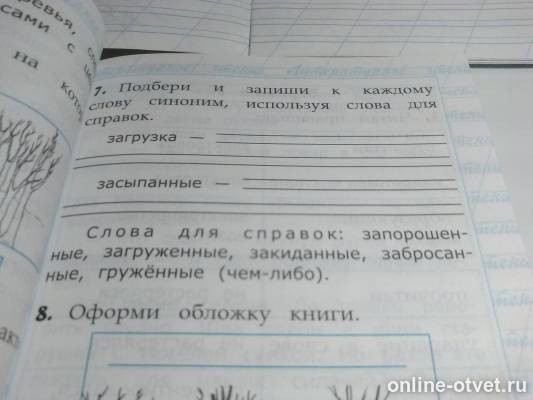 ревья,
сами с
на
7. Подбери и запиши к каждому
слову синоним, используя слова для
справок.
загрузка —
засыпанные —
Слова для справок: запорошен-
ные, загруженные, закиданные, забросан-
ные, гружённые (чем-либо).
8. Оформи обложку книги.
online-otvet.ru